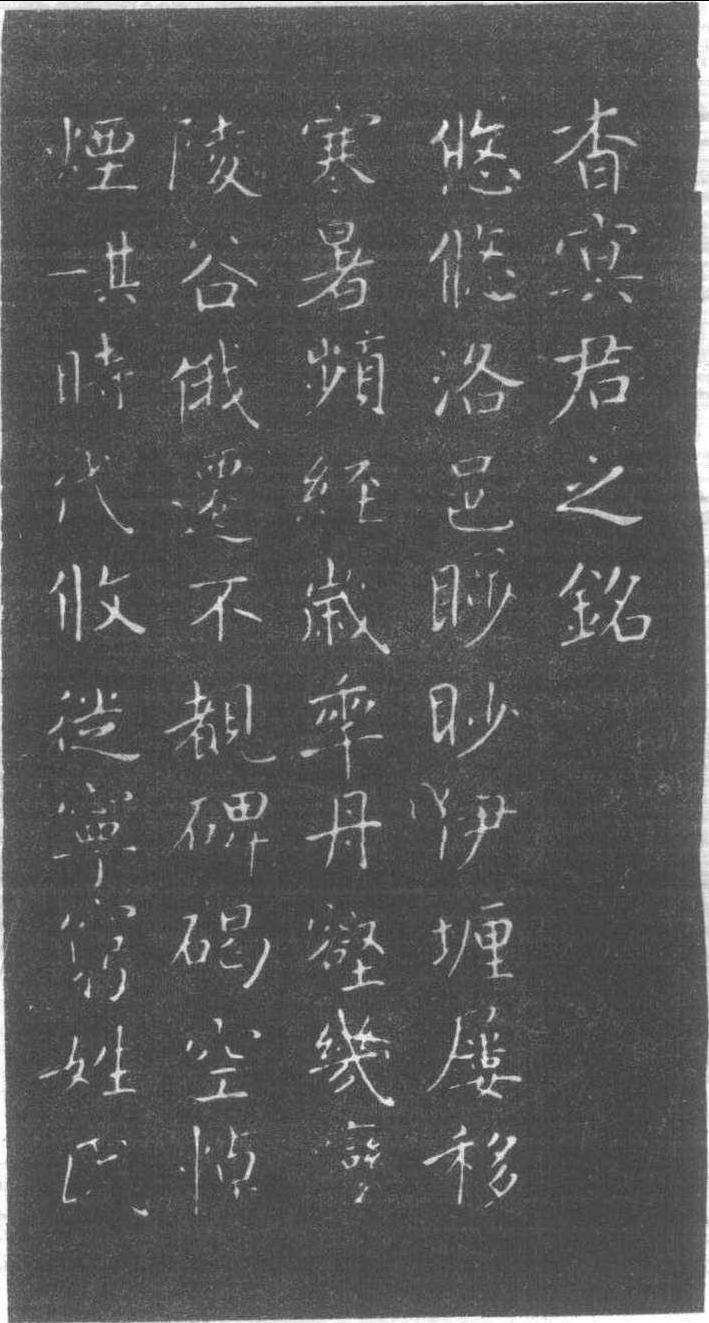 杳冥君之銘
悠悠洛邑眇眇伊壥屢移
寒暑頻經歲年丹壑幾變
陵谷俄遷不覩碑碣空
煙其一時代攸徙寧窮姓氏